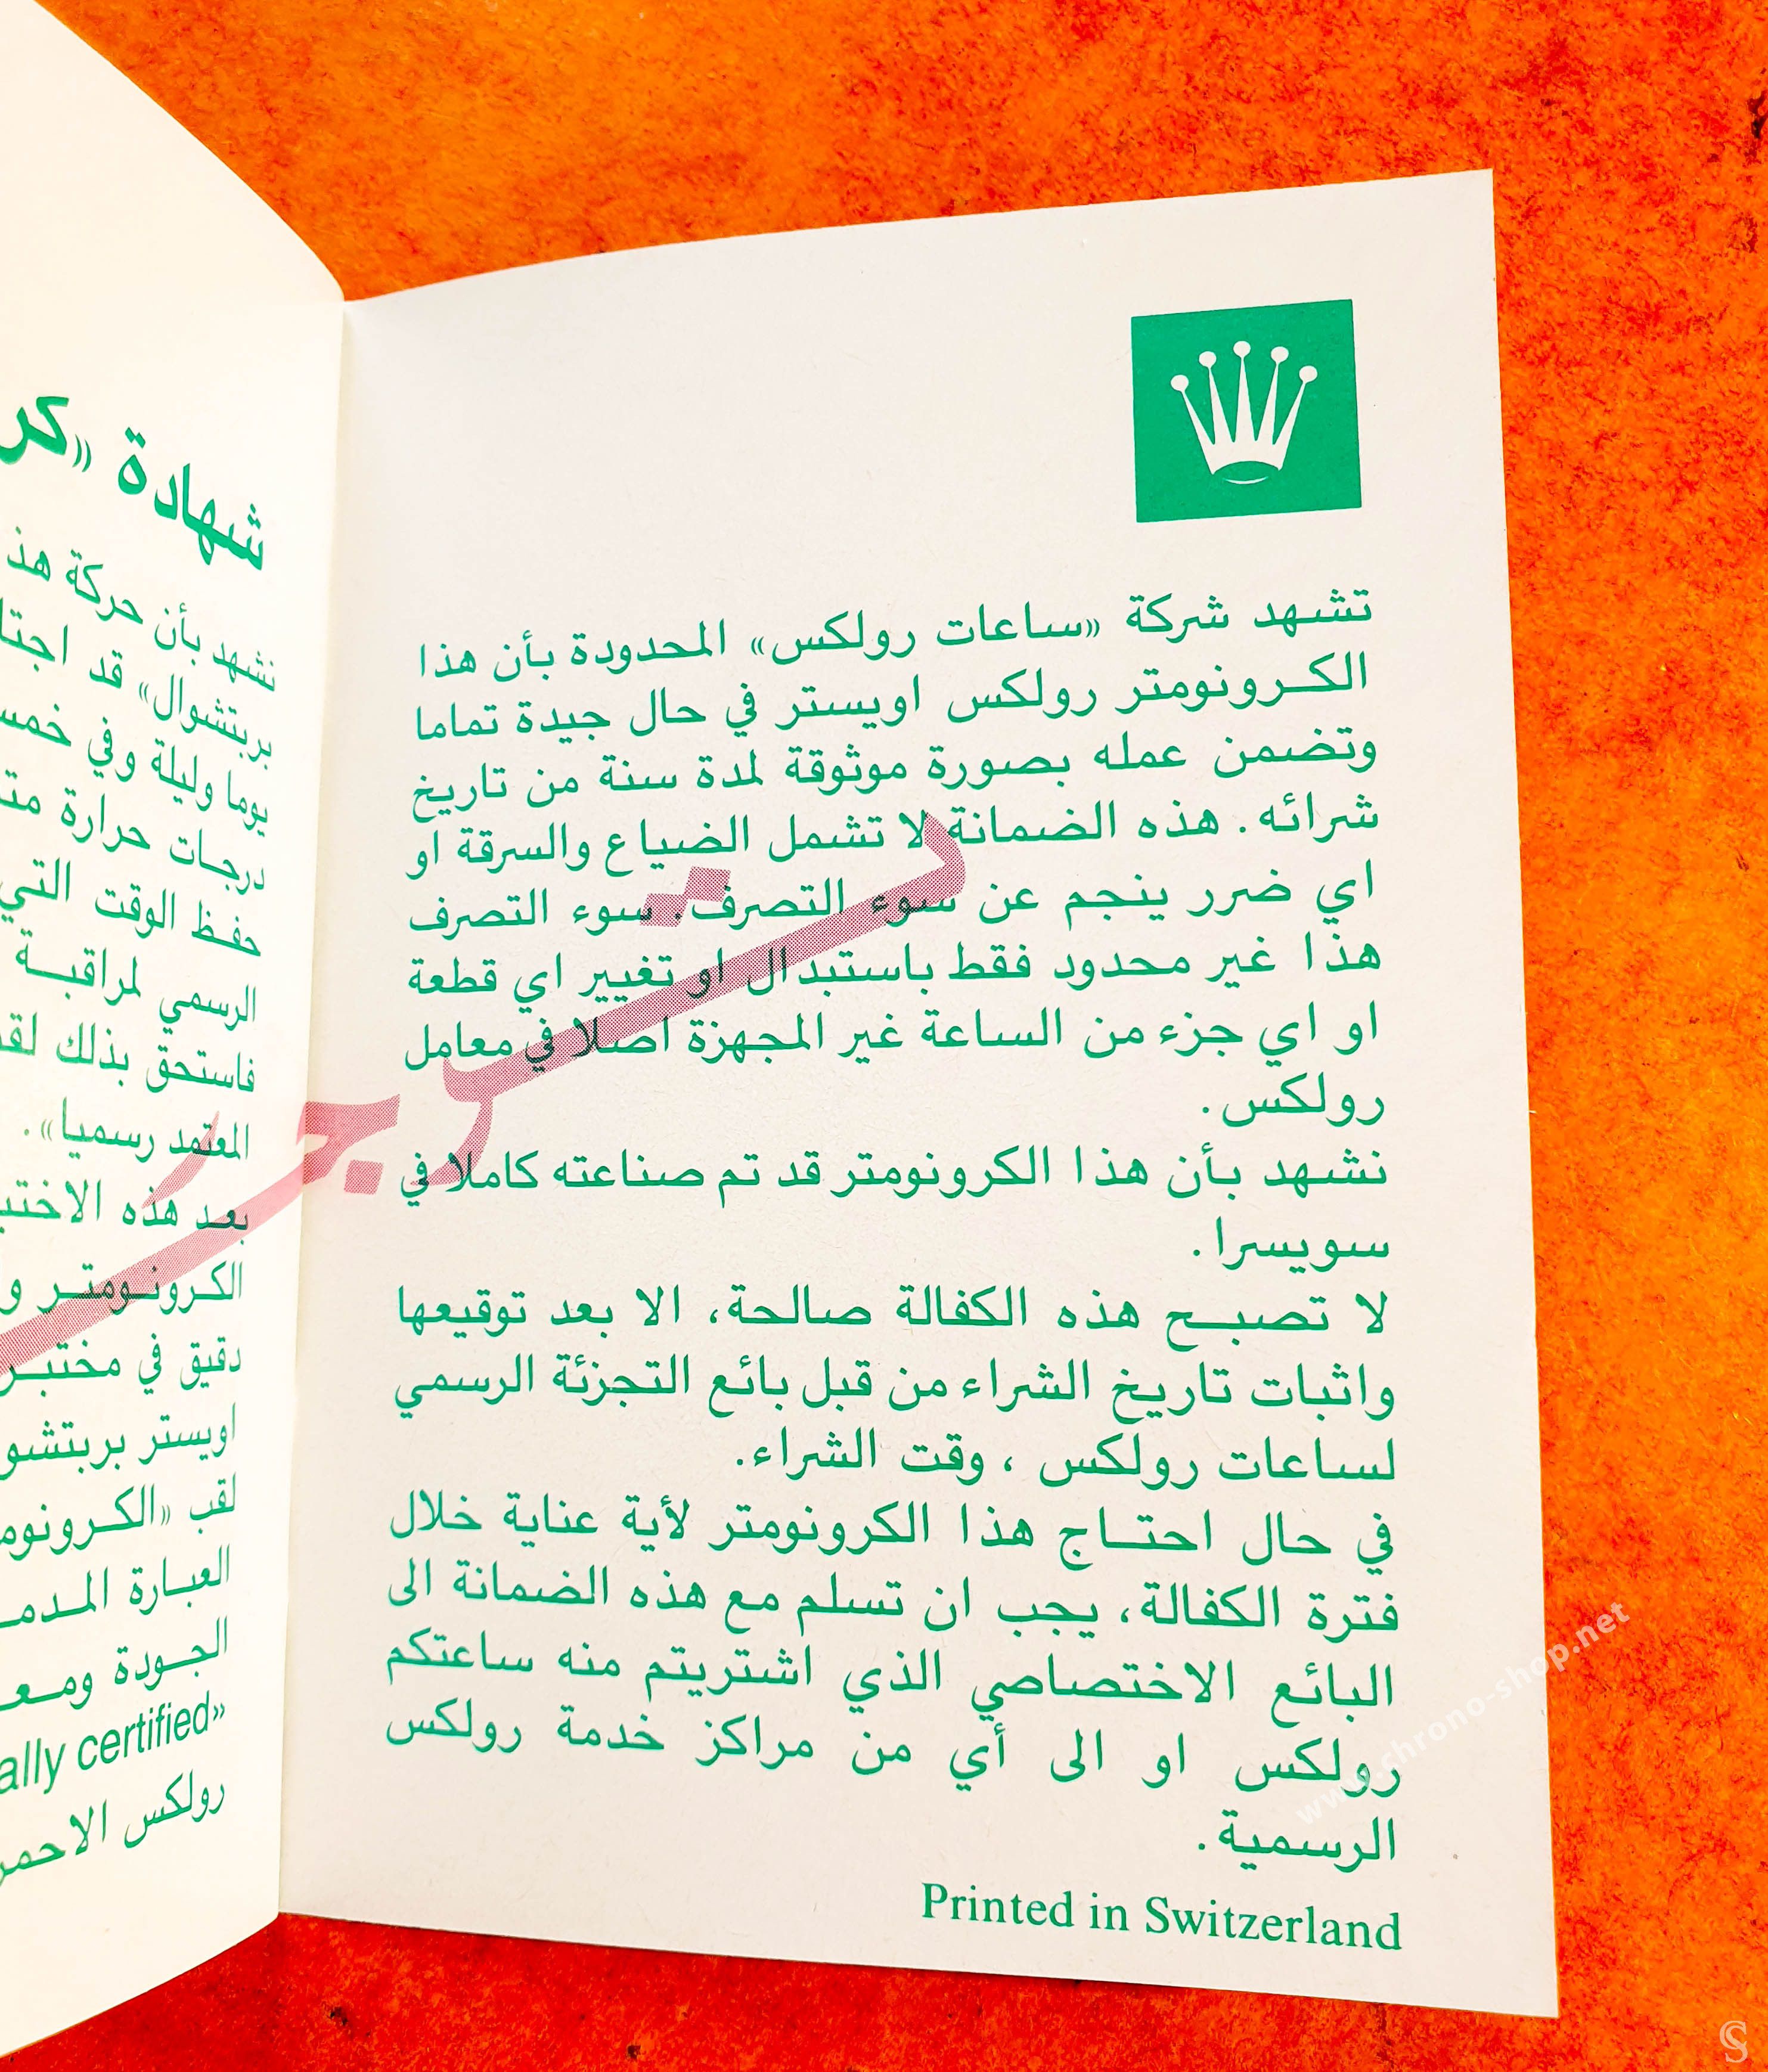 تشهد شركة «ساعات رولكس» المحدودة بأن هذا
الكرونومتر رولكس اويستر في حال جيدة تماما
وتضمن عمله بصورة موثوقة لمدة سنة من تاريخ
شرائه. هذه الضمانة لا تشمل الضياع والسرقة او
اي ضرر ينجم عن سوء التصرف. سوء التصرف
هذا غير محدود فقط باستبدال او تغيير اي قطعة
او اي جزء من الساعة غير المجهزة اصلا في معامل
رولكس.
نشهد بأن هذا الكرونومتر قد تم صناعته كاملا في
سويسرا.
لا تصبح هذه الكفالة صالحة، الا بعد توقيعها
واثبات تاريخ الشراء من قبل بائع التجزئة الرسمي
لساعات رولكس ، وقت الشراء.
في حال احتاج هذا الكرونومتر لأية عناية خلال
فترة الكفالة، يجب ان تسلم مع هذه الضمانة الى
البائع الاختصاصي الذي اشتريتم منه ساعتكم
رولكس او الى أي من مراكز خدمة رولكس
الرسمية.
Printed in Switzerland
شهادة «كر
نشهد بأن حركة هذ
بربتشوال» قد اجتا
يوما وليلة وفي خمس
درجات حرارة مت
حفظ الوقت التي
الرسمي لمراقبة
فاستحق بذلك لق
المعتمد رسميا».
بعد هذه الاختب
الكرونومتر و
دقيق في مختبر
اويستر بربتشو
لقب «الكرونوم
العبارة المدم
الجودة ومع
ally certified»
رولكس الاحمر
www.chrono-shop.net